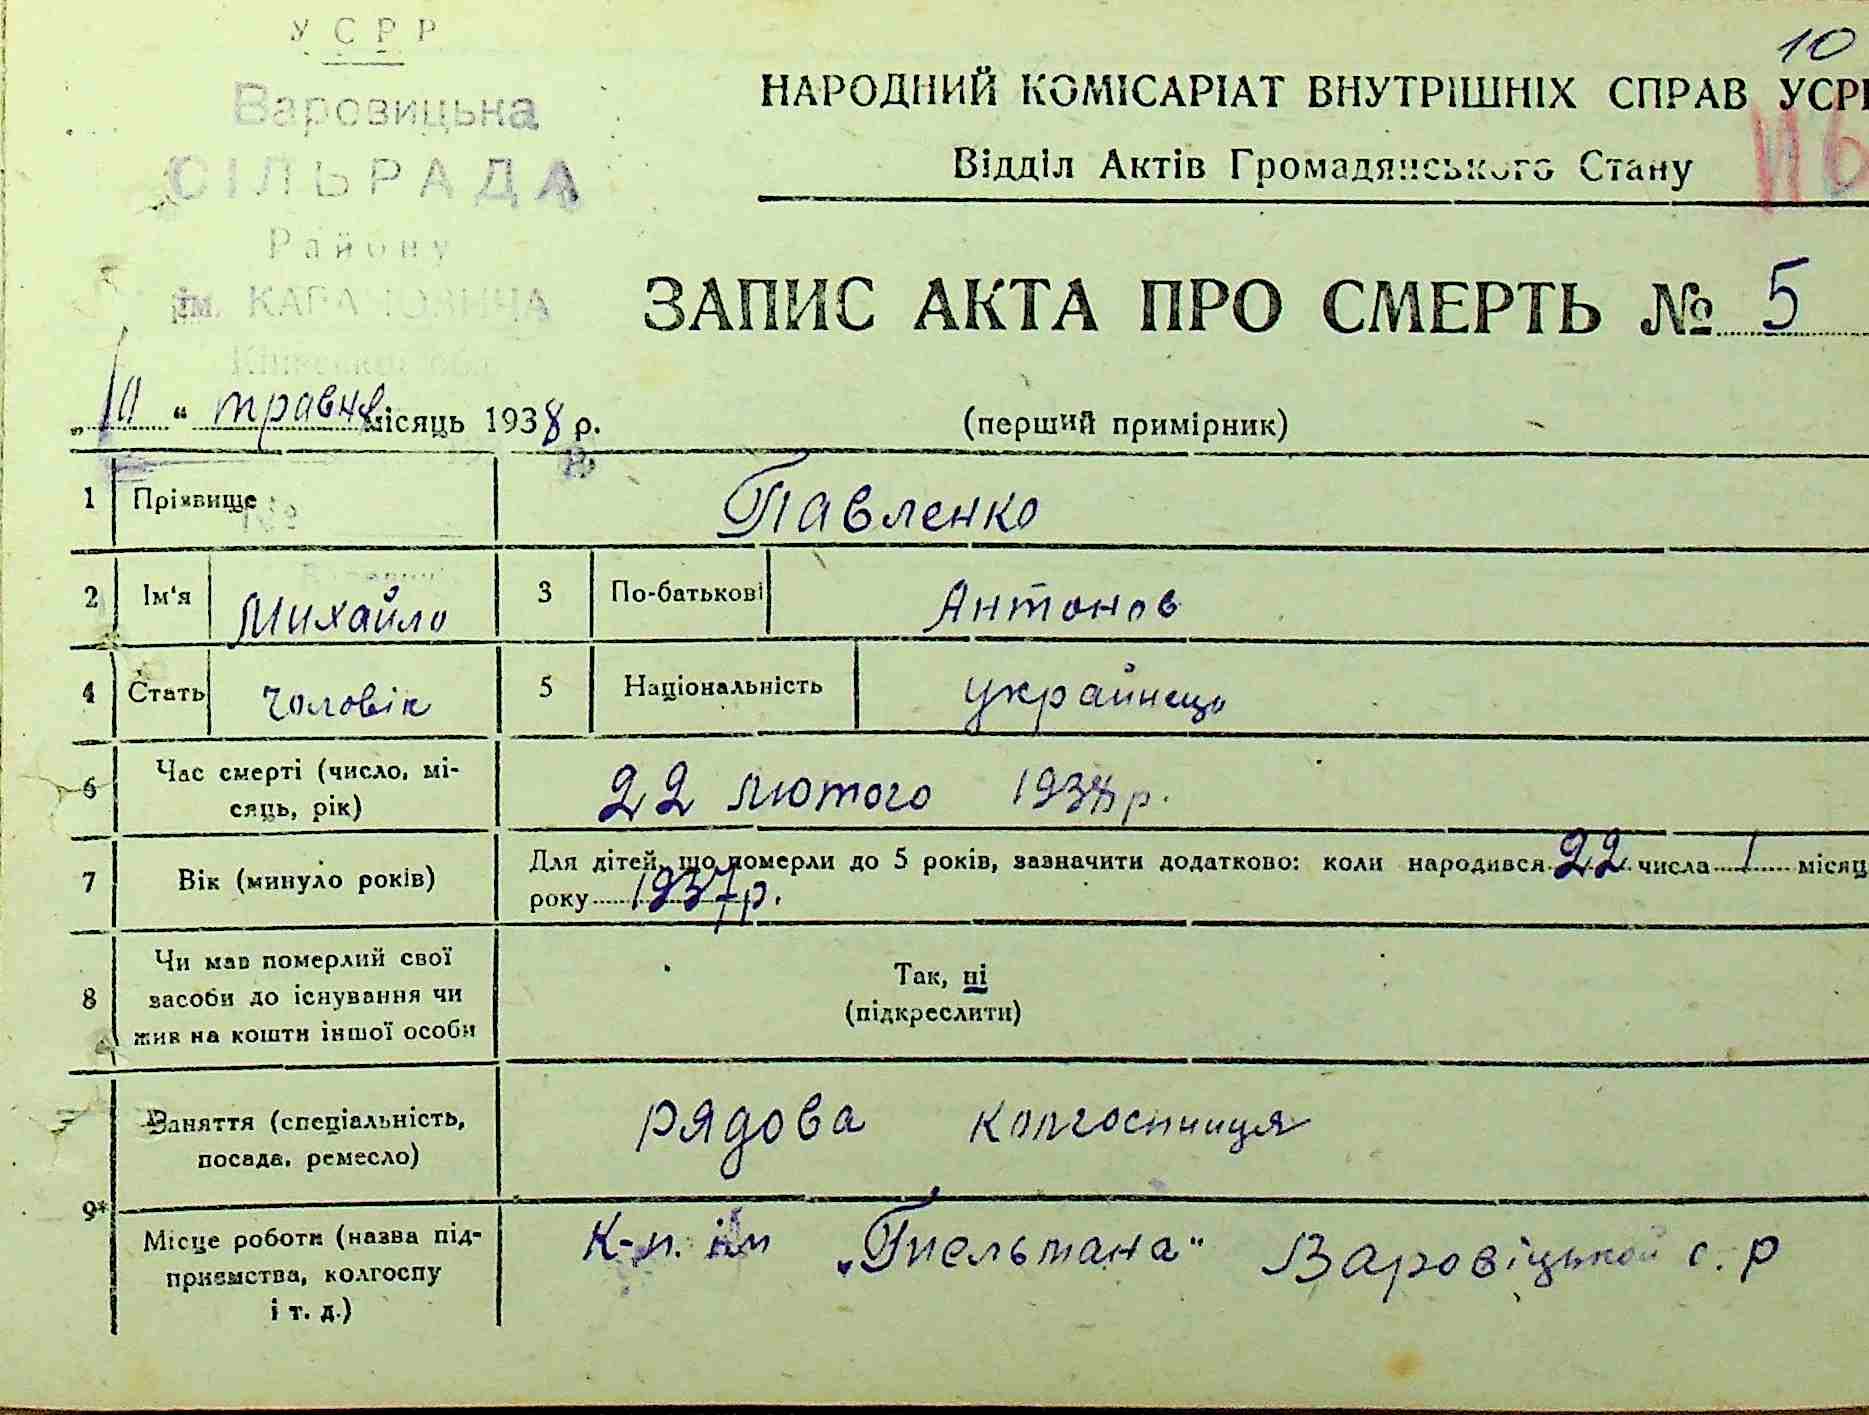 УСРР
10
Варовицька
СІЛЬРАДА
Району
ім.
НАРОДНИЙ КОМІСАРІАТ ВНУТРІШНІХ СПРАВ УСРР
Відділ Актів Громадянського Стану
ЗАПИС АКТА ПРО СМЕРТЬ № 5
„10“ травня місяць 1938 р.
(перший примірник)
1 Прізвище Павленко
2 Ім'я Михайло 3 По-батькові Антонов
4 Стать чоловік 5 Національність українець
6 Час смерті (число, мі-
сяць, рік) 22 лютого 1938 р.
7 Вік (минуло років) Для дітей, що померли до 5 років, зазначити додатково: коли народився 22 числа 1 місяц
року 1937 р.
8 Чи мав померлий свої
засоби до існування чи
жив на кошти іншої особи
Так, ні
(підкреслити)
9*
Заняття (спеціальність,
посада, ремесло) рядова колгоспниця
Місце роботи (назва під-
приємства, колгоспу
і т. д.)
К-п. ім „Тпельмана“ Заровіцької с. р